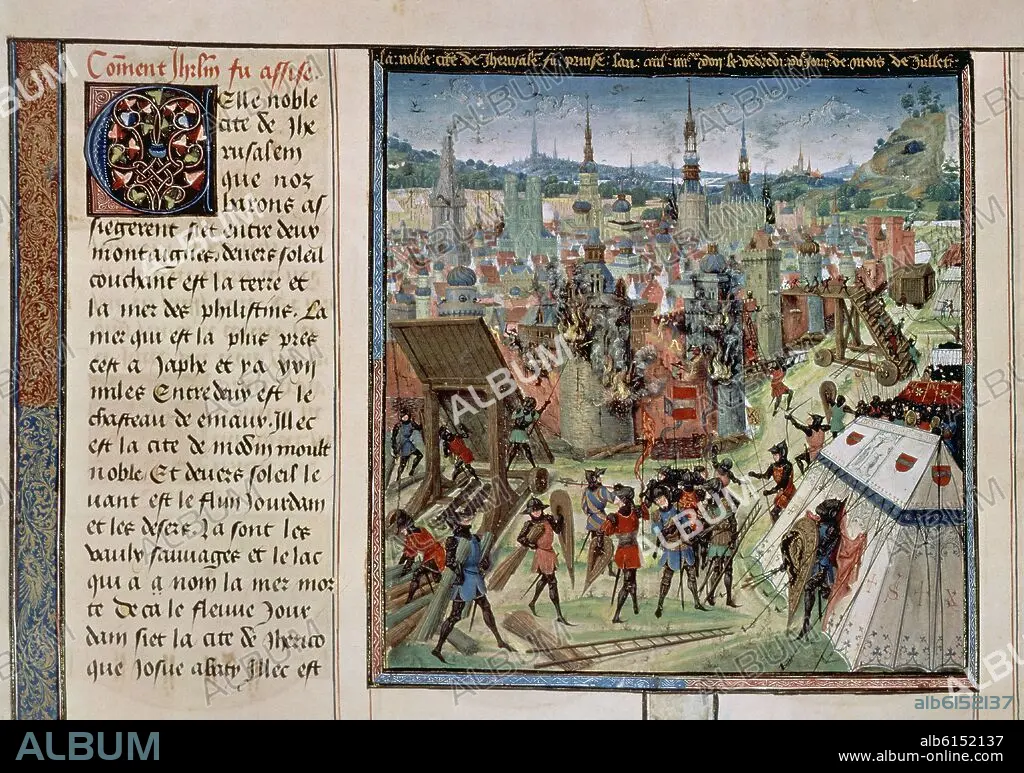 Coment Jhrlm fu assise.
Celle noble
cite de Jhe
rusalem
que noz
barons as
siegerent siet entre deux
montaignes. devers soleil
couchant est la terre et
la mer des philistins. La
mer qui est la plus pres
cest a Japhe et ya xvii
miles Entre deux est le
chasteau de emaux. Illec
est la cite de modin moult
noble. Et devers soleil le
vant est le flun Jourdain
et les desers. La sont les
vaulx sauvages et le lac
qui a a nom la mer mor
te de ca le fleuve Jour
dain siet la cite de Jherico
que Josue abaty Illec est
la noble cite de Jherusalem fu prinse lan le vendredi jour de mois de Jullet
ALBUM
alb6152137
ALBUM
alb6152137
www.album-online.com